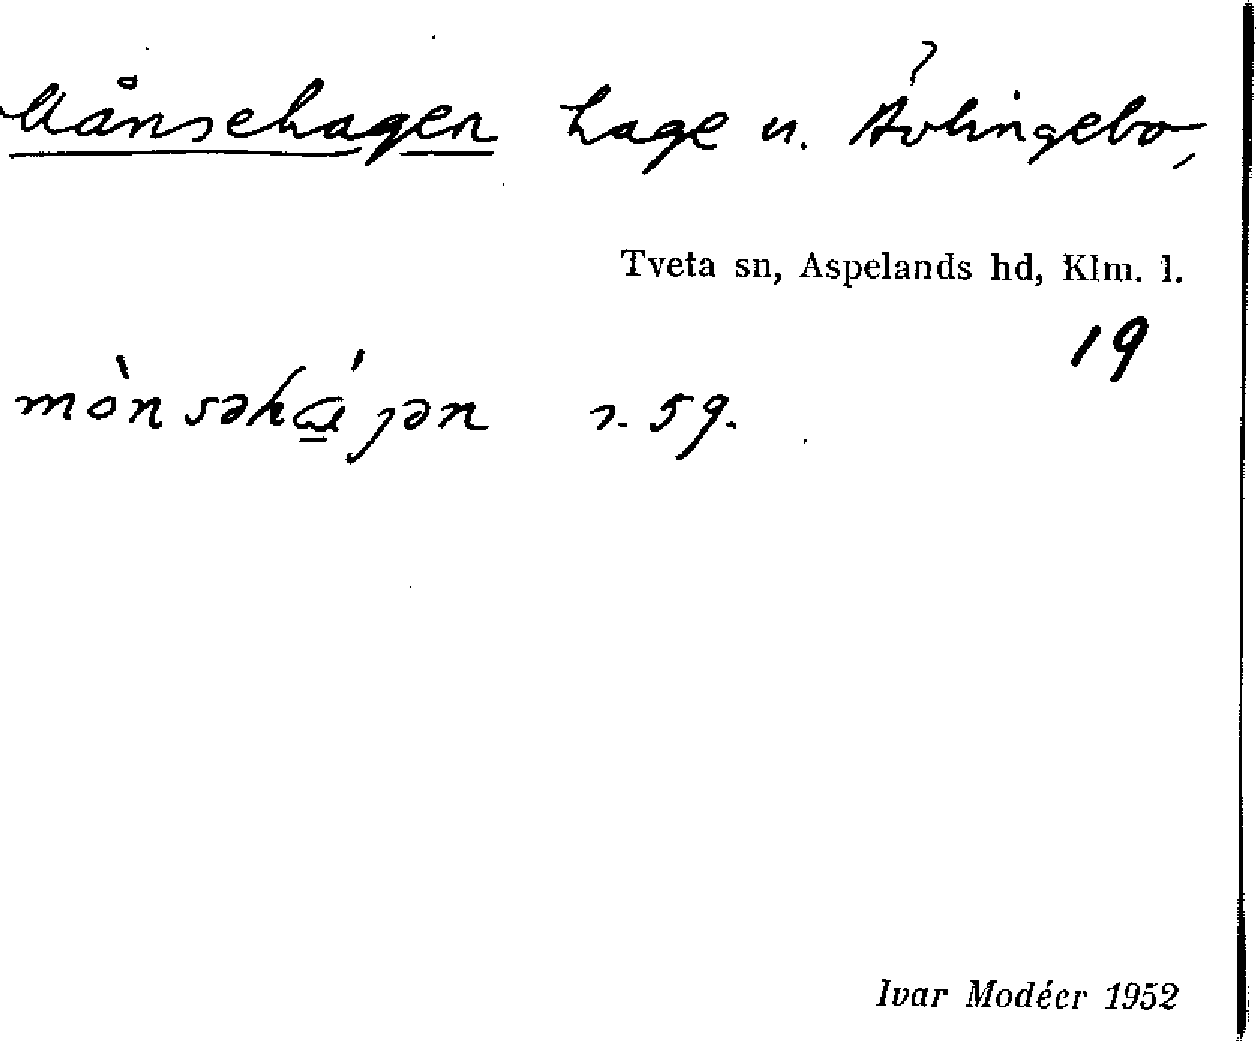 Månsehagen hage u. Avlingebo,
Tveta sn, Aspelands hd, Klm. l.
19
mònsəhɑ́jən s. 59.
Ivar Modéer 1952